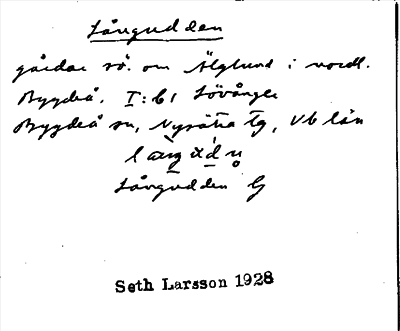 Långudden
gårdar sö. om Älglund i nordl.
Bygdeå. I:61 Lövånger
Bygdeå sn, Nysätra tg, Vb län
Långudden G
Seth Larsson 1928